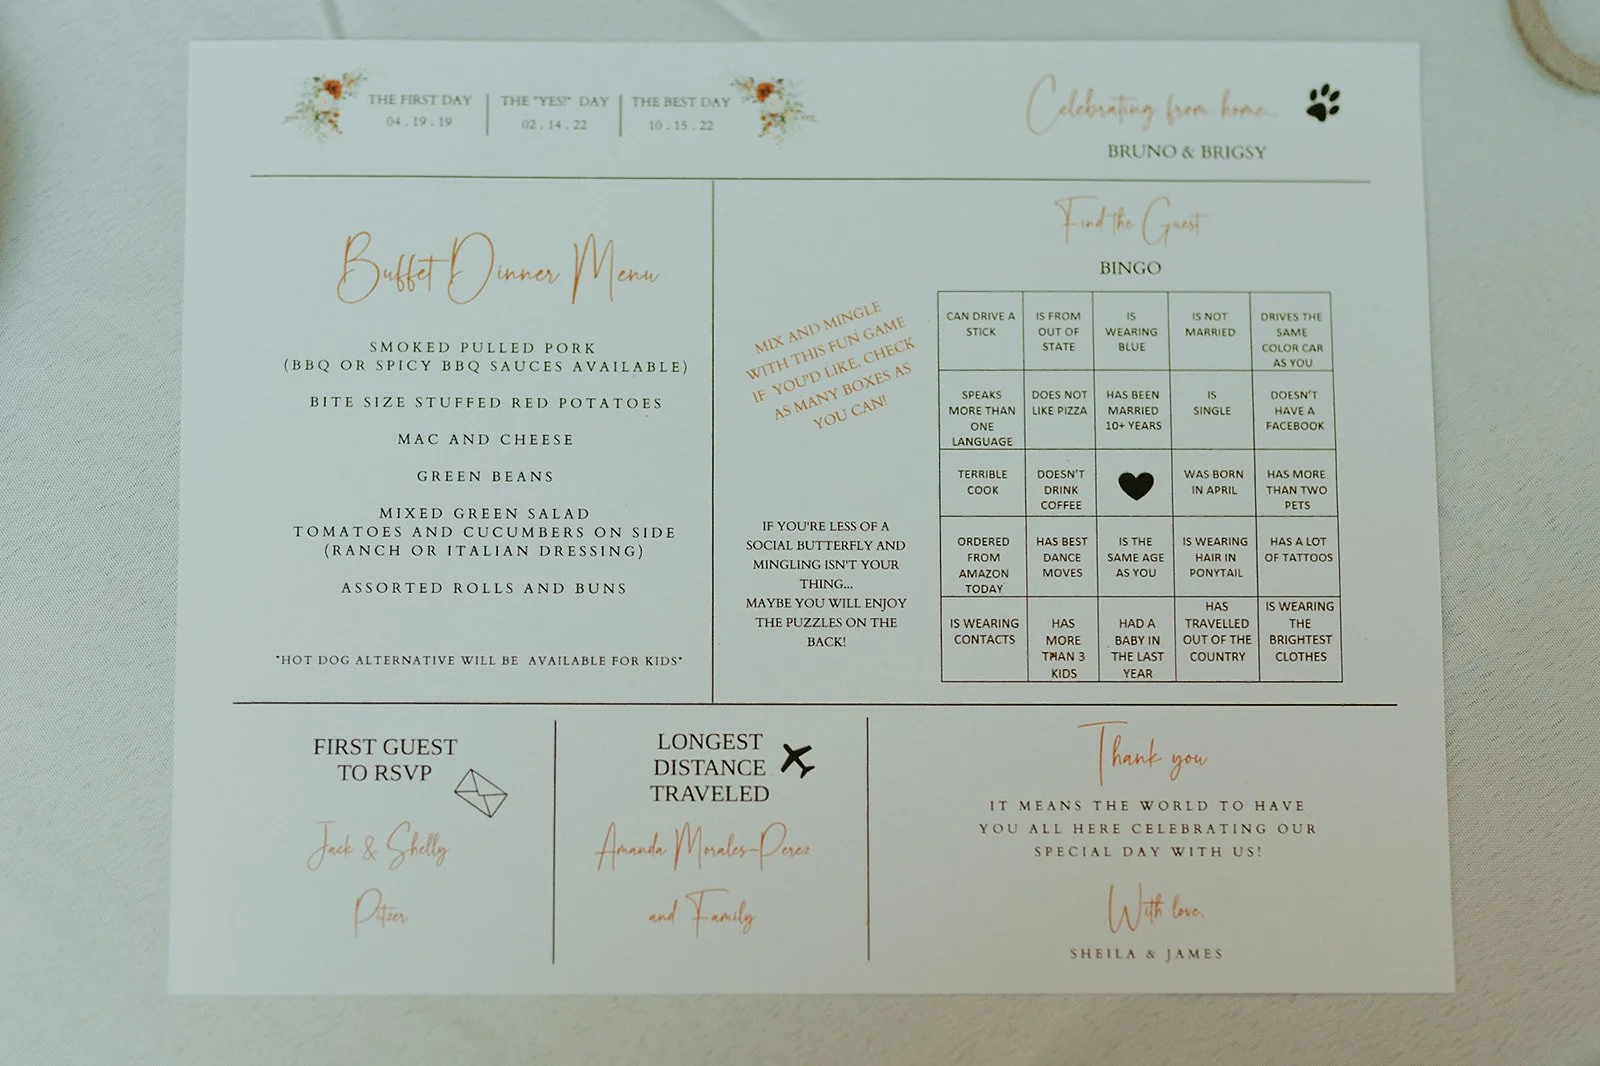 THE FIRST DAY
04 . 19 . 19
THE "YES!" DAY
02 . 14 . 22
THE BEST DAY
10 . 15 . 22
Celebrating from home...
BRUNO & BRIGSY
Buffet Dinner Menu
SMOKED PULLED PORK
(BBQ OR SPICY BBQ SAUCES AVAILABLE)
BITE SIZE STUFFED RED POTATOES
MAC AND CHEESE
GREEN BEANS
MIXED GREEN SALAD
TOMATOES AND CUCUMBERS ON SIDE
(RANCH OR ITALIAN DRESSING)
ASSORTED ROLLS AND BUNS
*HOT DOG ALTERNATIVE WILL BE AVAILABLE FOR KIDS*
MIX AND MINGLE
WITH THIS FUN GAME
IF YOU'D LIKE. CHECK
AS MANY BOXES AS
YOU CAN!
IF YOU'RE LESS OF A
SOCIAL BUTTERFLY AND
MINGLING ISN'T YOUR
THING...
MAYBE YOU WILL ENJOY
THE PUZZLES ON THE
BACK!
Find the Guest
BINGO
CAN DRIVE A
STICK
IS FROM
OUT OF
STATE
IS
WEARING
BLUE
IS NOT
MARRIED
DRIVES THE
SAME
COLOR CAR
AS YOU
SPEAKS
MORE THAN
ONE
LANGUAGE
DOES NOT
LIKE PIZZA
HAS BEEN
MARRIED
10+ YEARS
IS
SINGLE
DOESN'T
HAVE A
FACEBOOK
TERRIBLE
COOK
DOESN'T
DRINK
COFFEE
WAS BORN
IN APRIL
HAS MORE
THAN TWO
PETS
ORDERED
FROM
AMAZON
TODAY
HAS BEST
DANCE
MOVES
IS THE
SAME AGE
AS YOU
IS WEARING
HAIR IN
PONYTAIL
HAS A LOT
OF TATTOOS
IS WEARING
CONTACTS
HAS
MORE
THAN 3
KIDS
HAD A
BABY IN
THE LAST
YEAR
HAS
TRAVELLED
OUT OF THE
COUNTRY
IS WEARING
THE
BRIGHTEST
CLOTHES
FIRST GUEST
TO RSVP
Jack & Shelly
Pitzer
LONGEST
DISTANCE
TRAVELED
Amanda Morales-Perez
and Family
Thank you
IT MEANS THE WORLD TO HAVE
YOU ALL HERE CELEBRATING OUR
SPECIAL DAY WITH US!
With love,
SHEILA & JAMES